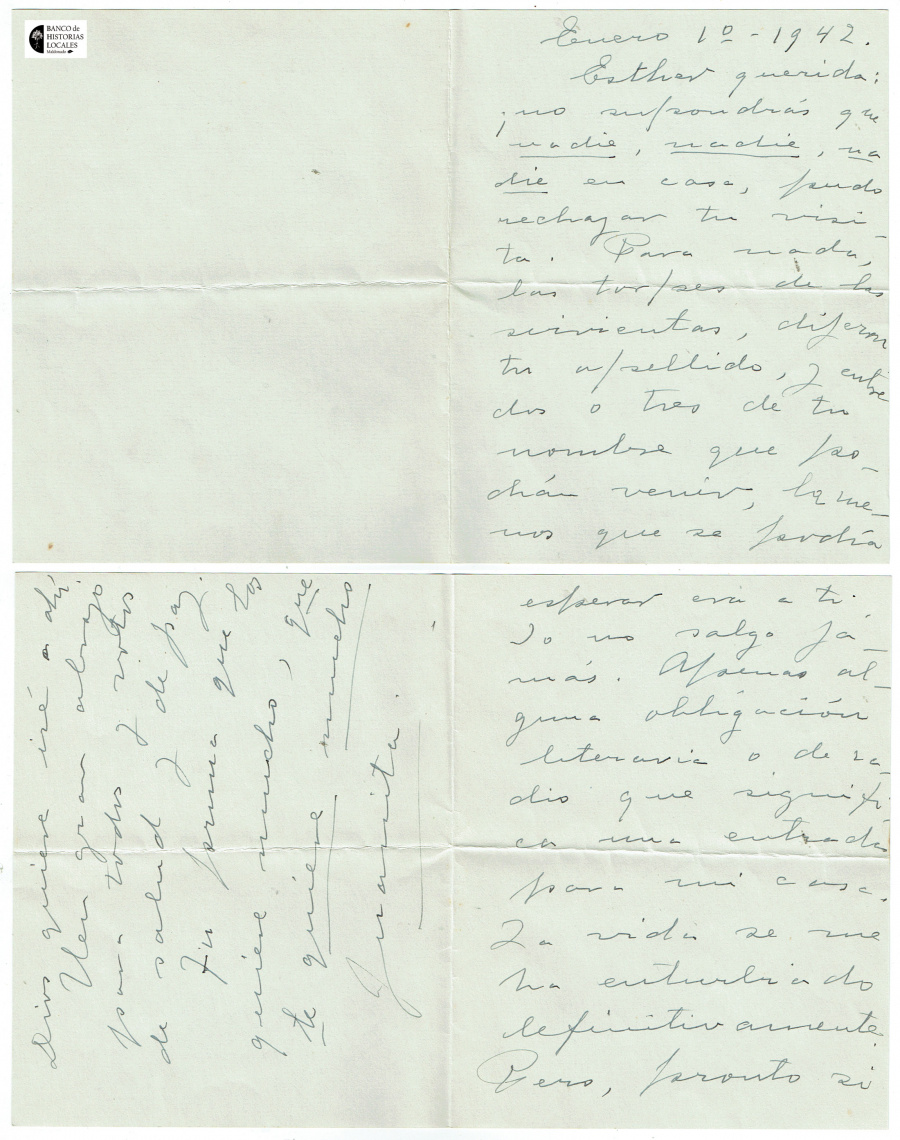 BANCO de
HISTORIAS
LOCALES
Maldonado
Enero 1º - 1942.
Esther querida:
¡no supondrás que
nadie, nadie, na
die en casa, pudo
rechazar tu visi-
ta. Para nada,
las torpes de las
sirvientas, dijeron
tu apellido, y entre
dos o tres de tu
nombre que po-
drán venir, la me-
nos que se podía
esperar era a ti.
Yo no salgo ja-
más. Apenas al-
guna obligación
literaria o de ra-
dio que signifi-
ca una entrada
para mi casa.
La vida se me
ha enturbiado
definitivamente.
Pero, pronto si
Dios quiere iré a ahí
Un gran abrazo
para todos y votos
de salud y de paz.
Tu prima que los
quiere mucho, que
te quiere mucho
Juanita.